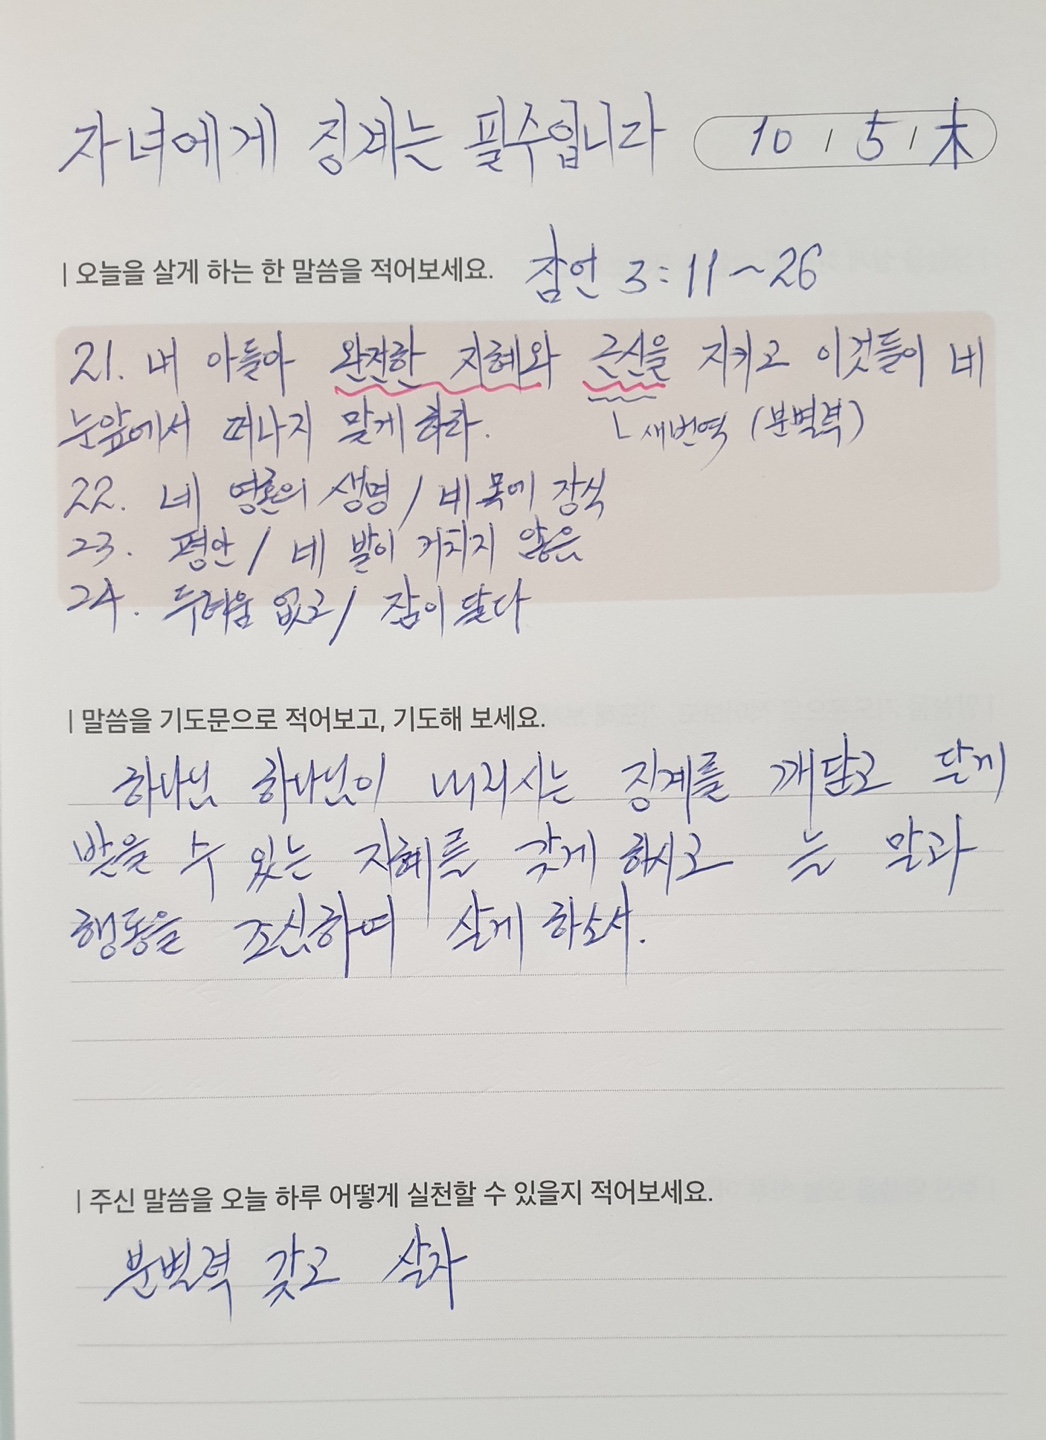 자녀에게 징계는 필수입니다 10 / 5 / 木
| 오늘을 살게 하는 한 말씀을 적어보세요. 잠언 3:11~26
21. 내 아들아 완전한 지혜와 근신을 지키고 이것들이 네
눈앞에서 떠나지 말게 하라. ㄴ새번역 (분별력)
22. 네 영혼의 생명 / 네 목에 장식
23. 평안 / 네 발이 거치지 않음
24. 두려움 없고 / 잠이 달다
| 말씀을 기도문으로 적어보고, 기도해 보세요.
하나님 하나님이 내리시는 징계를 깨닫고 달게
받을 수 있는 지혜를 갖게 하시고 늘 말과
행동을 조심하여 살게 하소서.
| 주신 말씀을 오늘 하루 어떻게 실천할 수 있을지 적어보세요.
분별력 갖고 살자